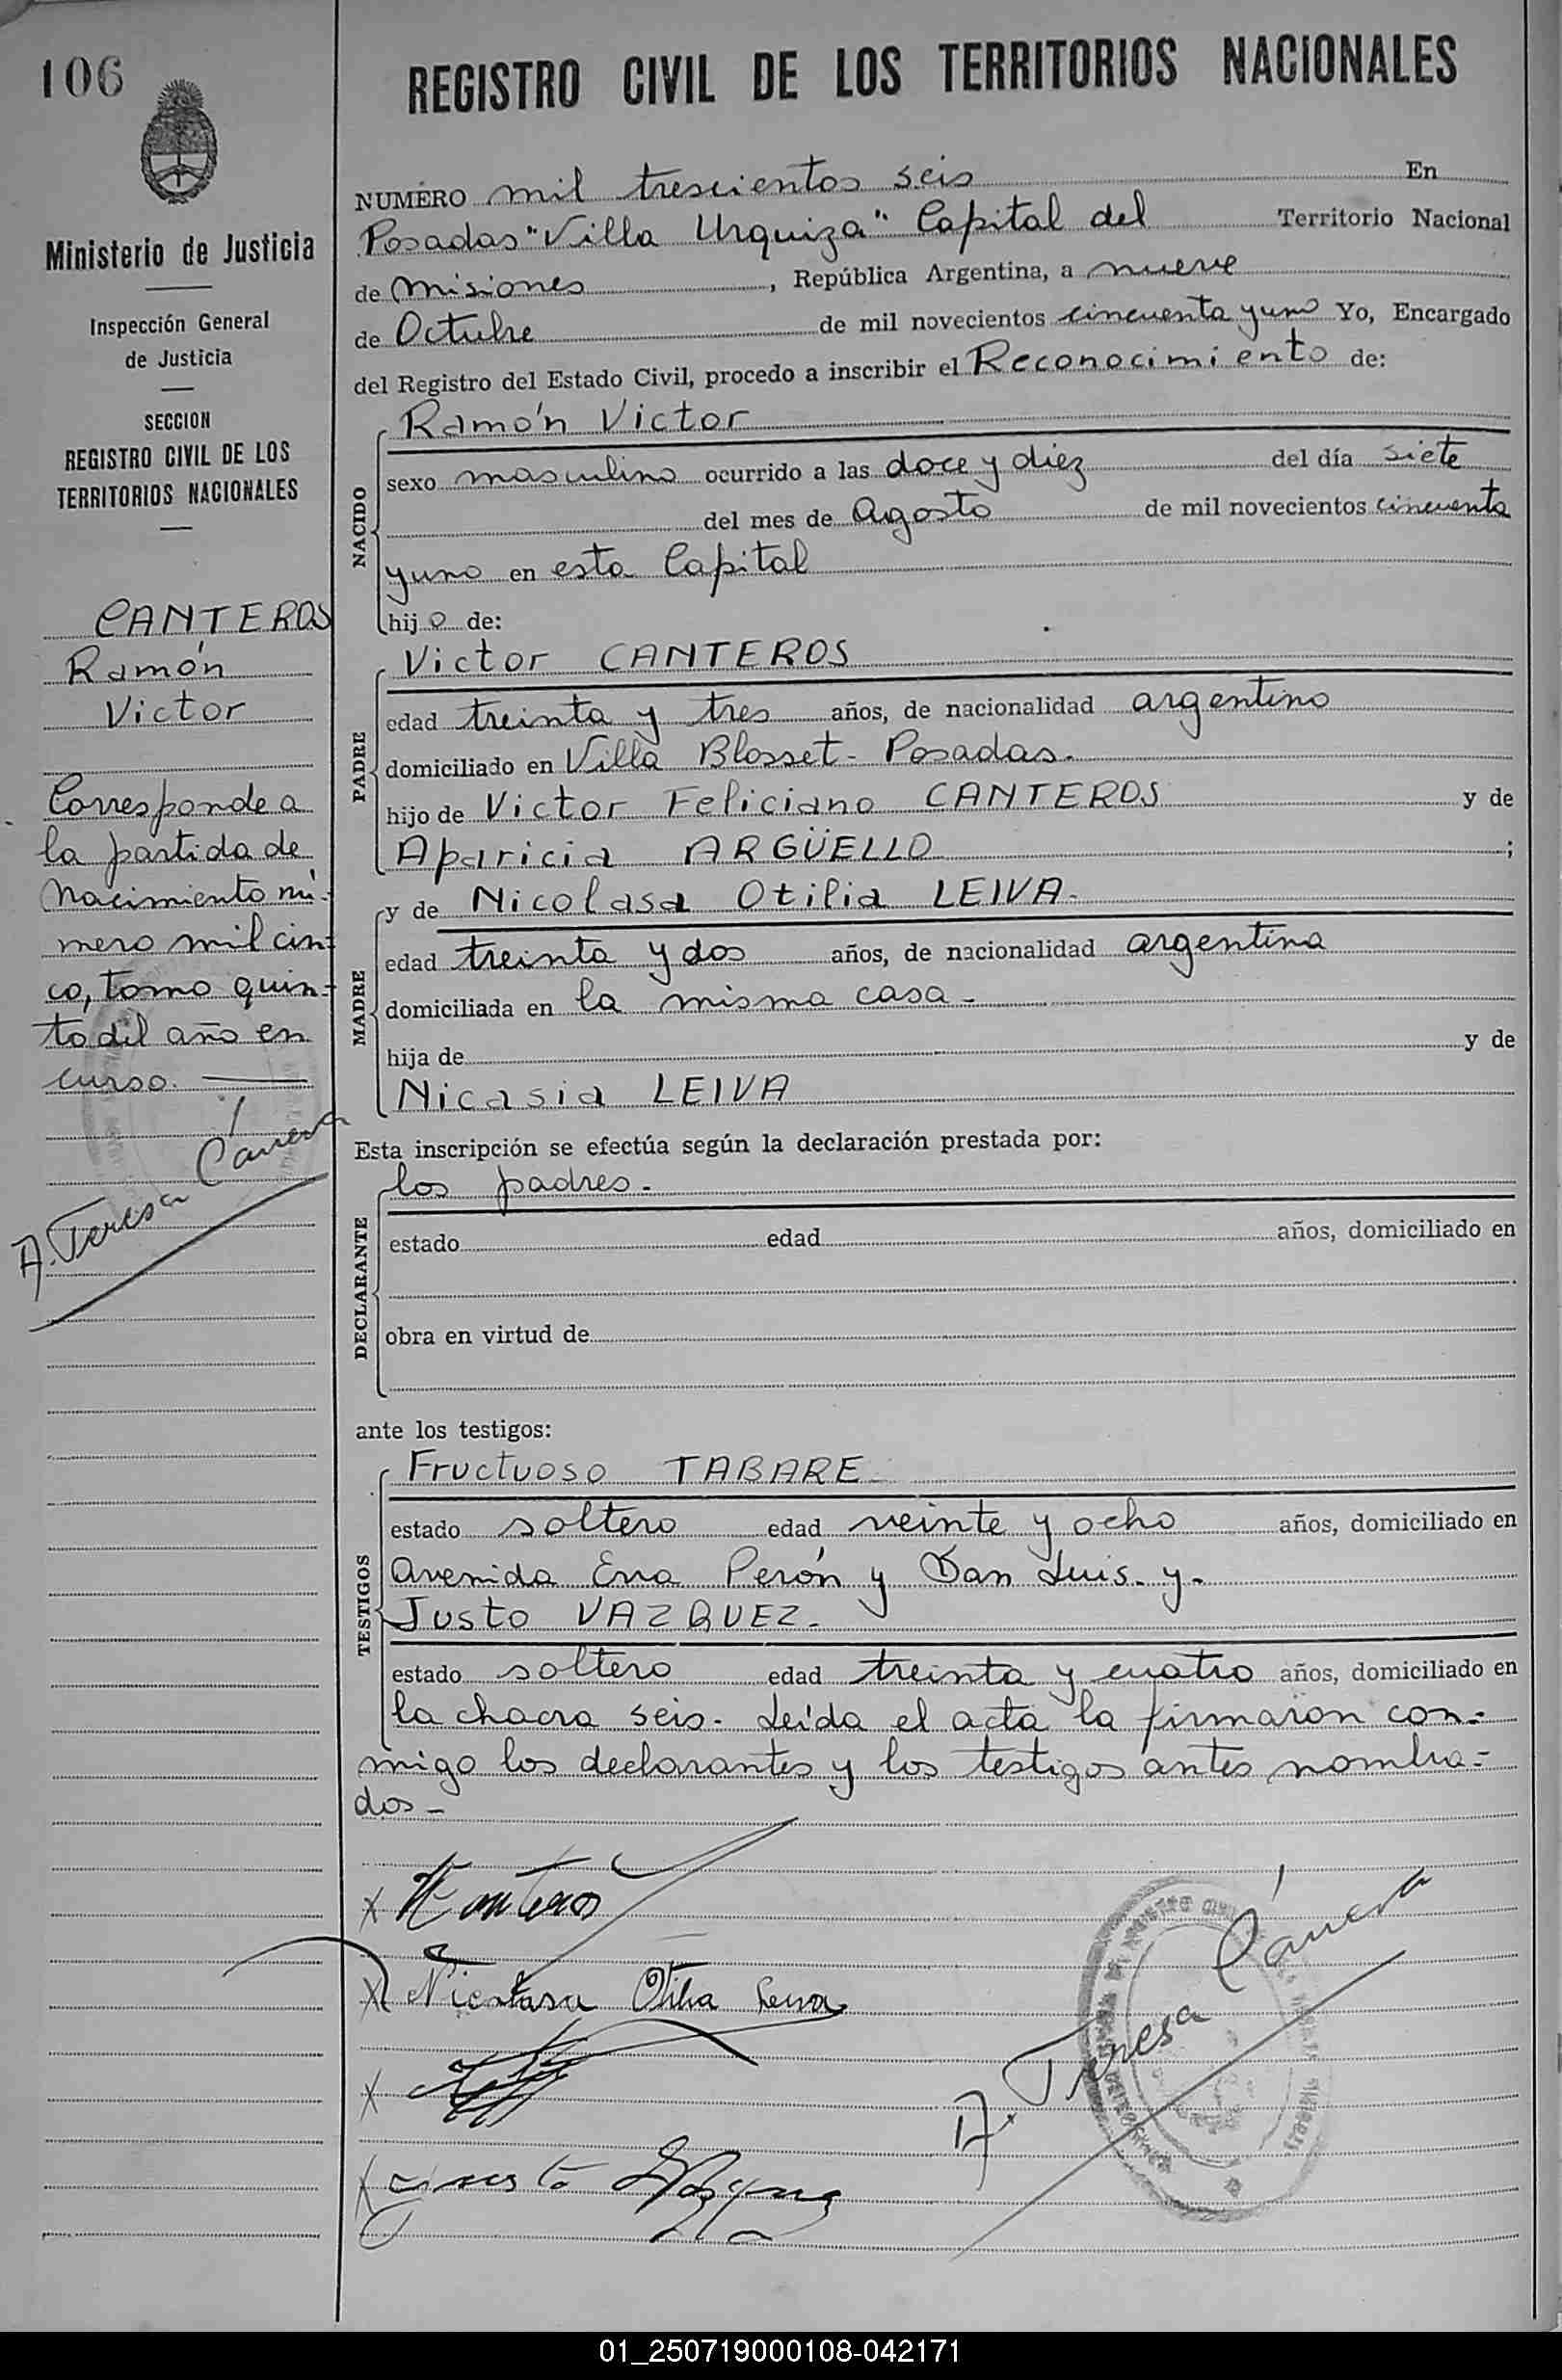 106
Ministerio de Justicia
Inspección General
de Justicia
SECCION
REGISTRO CIVIL DE LOS
TERRITORIOS NACIONALES
CANTEROS
Ramón
Victor
Corresponde a
la partida de
Nacimiento nú-
mero mil cin-
co, tomo quin-
to del año en
curso.
A. Teresa
REGISTRO CIVIL DE LOS TERRITORIOS NACIONALES
NUMERO mil trescientos seis En
Posadas "Villa Urquiza" Capital del Territorio Nacional
de Misiones, República Argentina, a nueve
de Octubre de mil novecientos cincuenta y uno Yo, Encargado
del Registro del Estado Civil, procedo a inscribir el Reconocimiento de:
Ramón Victor
NACIDO
sexo masculino ocurrido a las doce y diez del día siete
del mes de Agosto de mil novecientos cincuenta
y uno en esta Capital
hijo de:
Victor CANTEROS
PADRE
edad treinta y tres años, de nacionalidad argentino
domiciliado en Villa Blosset - Posadas.
hijo de Victor Feliciano CANTEROS y de
Aparicia ARGÜELLO ;
y de Nicolasa Otilia LEIVA-
MADRE
edad treinta y dos años, de nacionalidad argentina
domiciliada en la misma casa -
hija de y de
Nicasia LEIVA
Esta inscripción se efectúa según la declaración prestada por:
los padres.
DECLARANTE
estado edad años, domiciliado en
obra en virtud de
ante los testigos:
Fructuoso TABARE-
TESTIGOS
estado soltero edad veinte y ocho años, domiciliado en
Avenida Eva Perón y San Luis. y-
Justo VAZQUEZ.
estado soltero edad treinta y cuatro años, domiciliado en
la chacra seis. Leída el acta la firmaron con-
migo los declarantes y los testigos antes nombra-
dos -
Nicolasa Otilia Leiva
A. Teresa
01_250719000108-042171